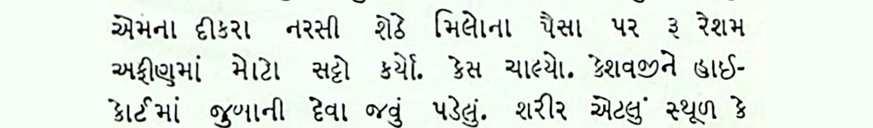 એમના દીકરા નરસી શેઠે મિલોના પૈસા પર રૂ રેશમ
અફીણમાં મોટો સટ્ટો કર્યો. કેસ ચાલ્યો. કેશવજીને હાઈ-
કોર્ટમાં જુબાની દેવા જવું પડેલું. શરીર એટલું સ્થૂળ કે